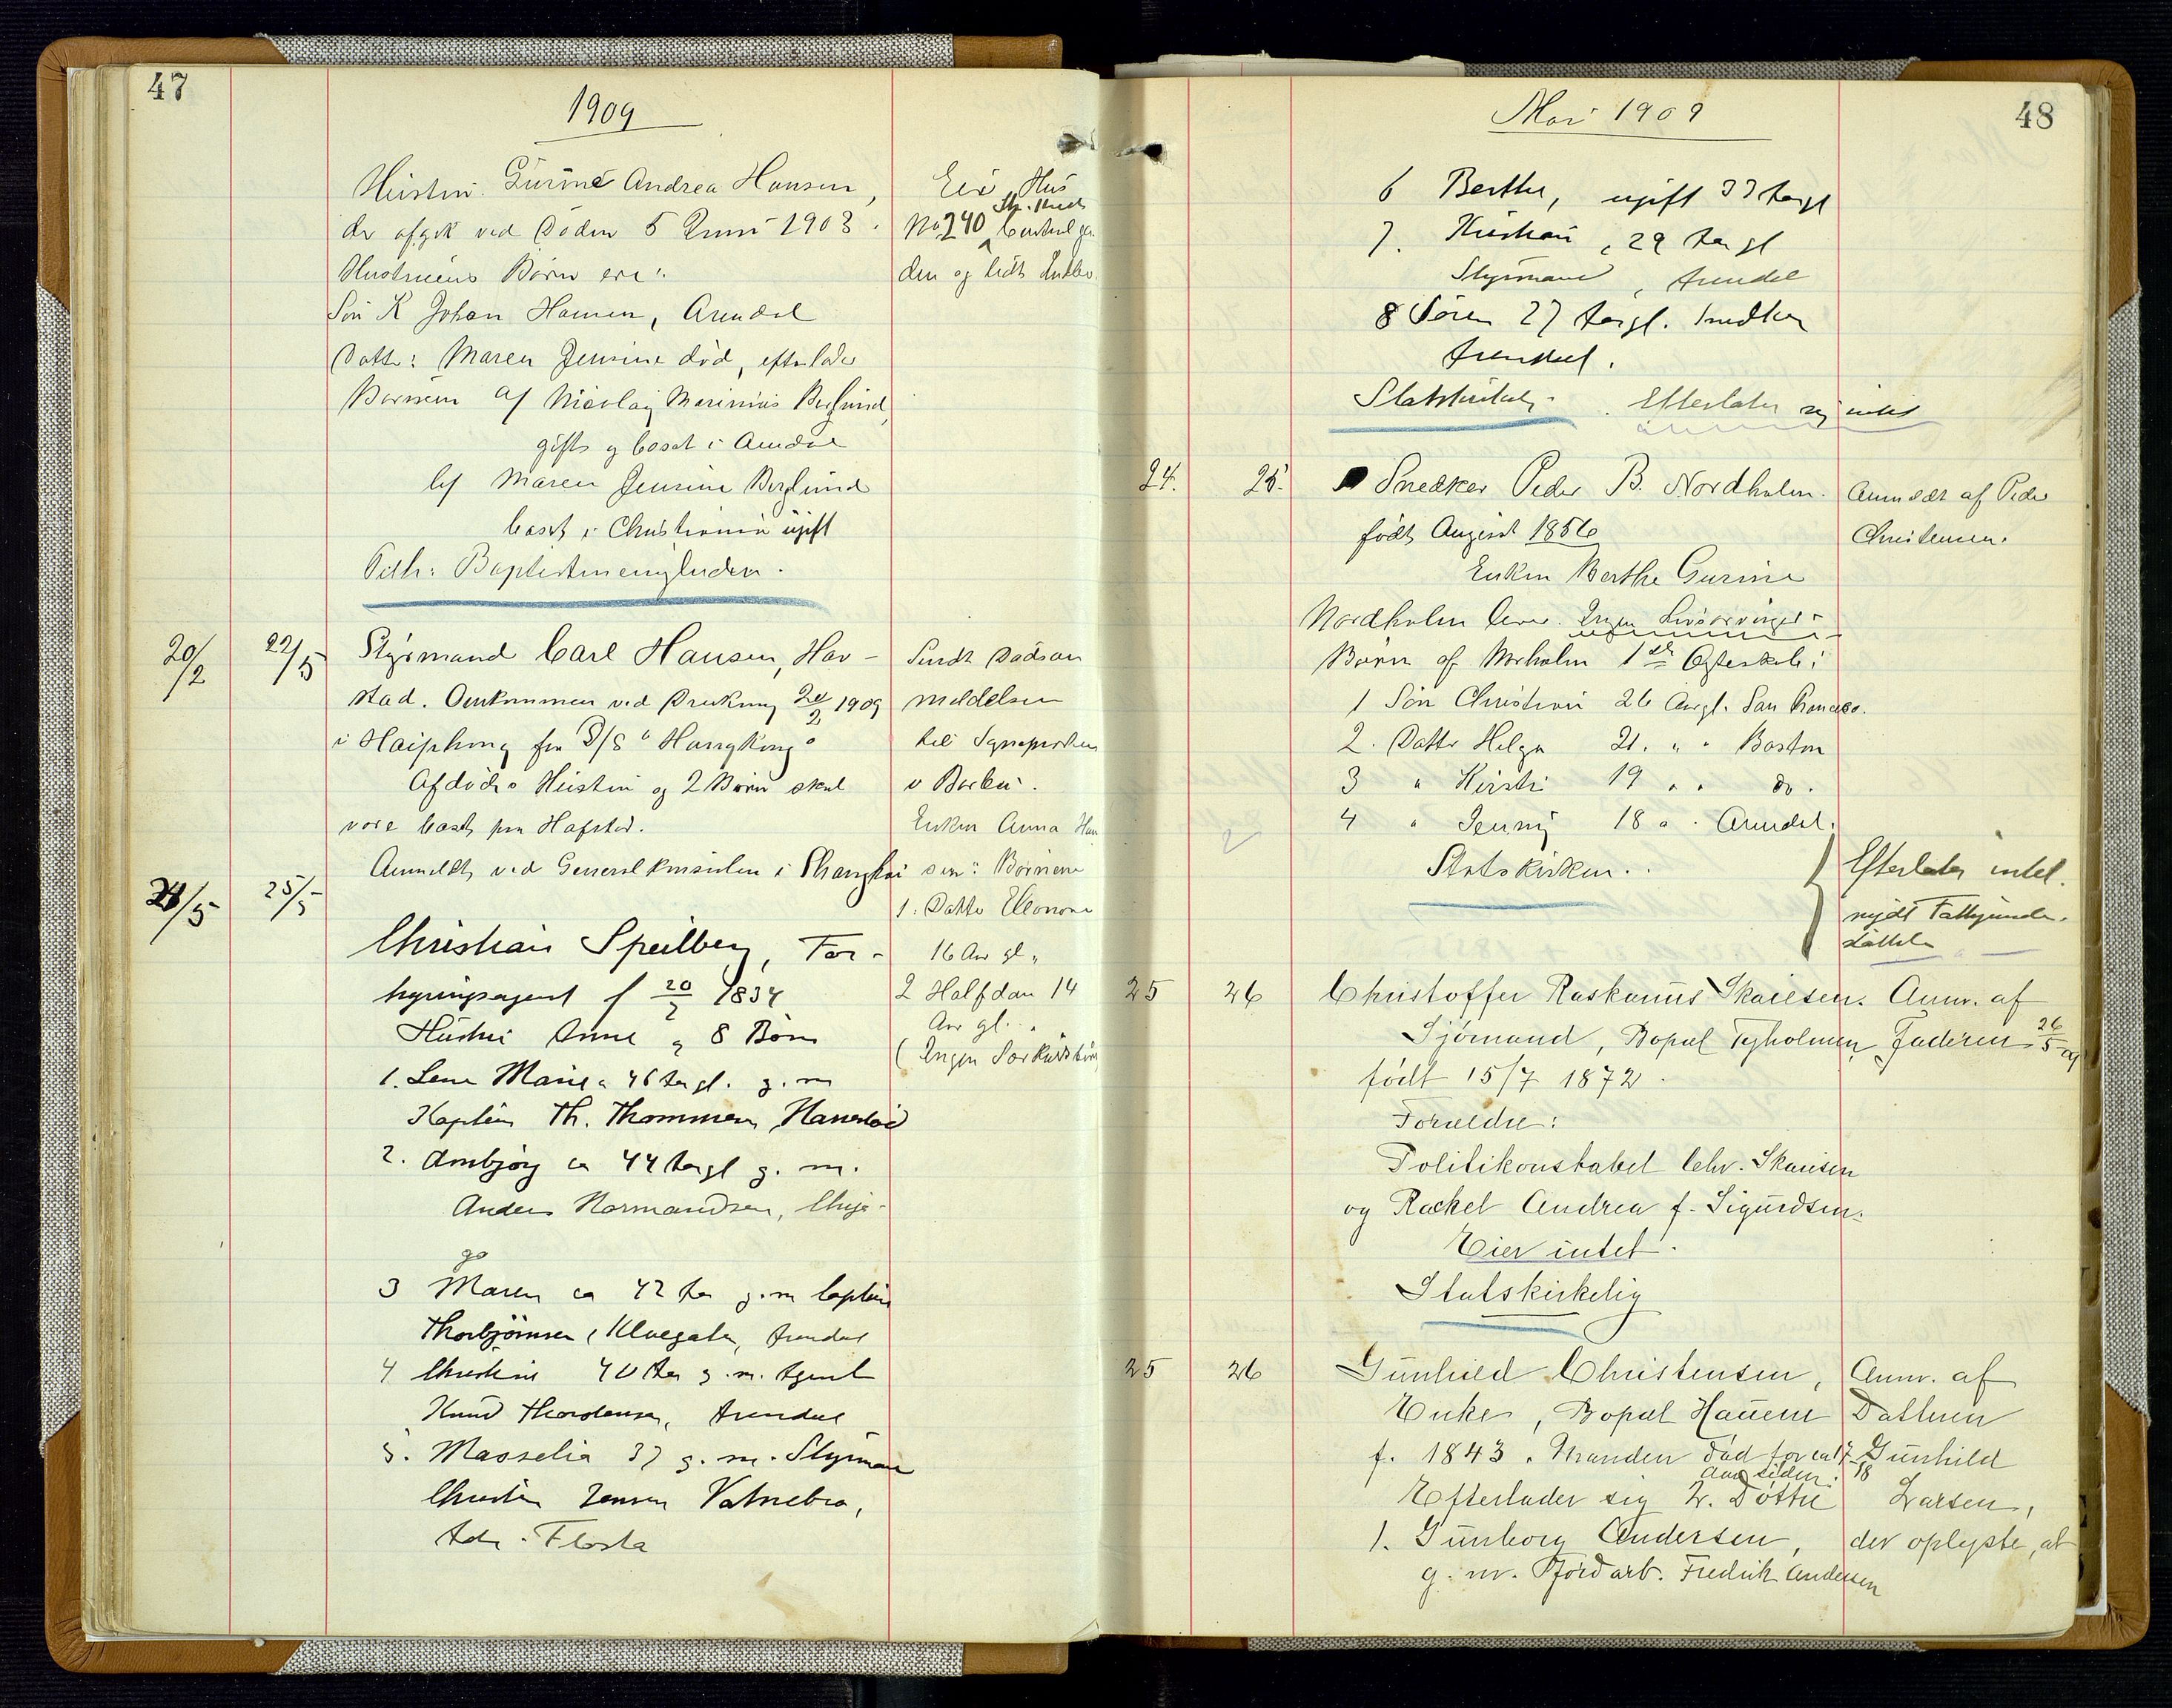 47
1909
Hustru Gurine Andrea Hansen,
der afgik ved Døden 5 Juni 1903.
Hustruens Børn ere:
Søn K Johan Hansen, Arendal
Datter: Maren Jensine død, efterlader
Børnene a/ Nicolay Marinius Berglund,
gift og bosat i Arendal
b/ Maren Jensine Berglund
bosat i Christiania ugift
Eier Hus
No 240
den og lidt Indbo.
20/2
22/5
Styrmand Carl Hansen, Hav-
stad. Omkommen ved Drukning 20/2 1909
i Haiphong fra D/S "Hangkong"
Afdødes Hustru og 2 Børn skal
være bosat paa Hafstad.
Anmeldt ved Generalkonsulen i Shanghai
Sendt Dødsan
meldelsen
til
v Barbu.
Enken Anna Han
sen: Børnene
1. Datter Eleonore
16 Aar gl.
2 Halfdan 14
Aar gl.
(Ingen Særkuldsbørn
25/5
Christian Speilberg, For-
hyringsagent f 20/2 1834
Hustru Anne og 8 Børn
1. Lene Marie ca 46 Aar gl. g.m
Kaptein Th. Thommesen,
2. Ambjørg ca 44 Aar gl g. m.
Anders Normandsen, Chica-
go
3 Maren ca 42 Aar g.m Captein
Thorbjørnsen, Arendal
4 Christine 40 Aar g.m. Agent
Knud Thorstensen, Arendal
5. Masselia 37 g.m. Styrmand
Christen Jensen Vatnebro,
Adr. Flosta
48
Mai 1909
6 Berthe, ugift 33 Aar gl
7. Kristian, 29 Aar gl
Styrmand, Arendal
8 Søren 27 Aar gl. Snedker
Arendal.
Statskirkelig. Efterlater sig intet
24. 25.
Snedker Peder B. Nordholm.
født August 1856
Enken Berthe Gurine
Nordholm lever. Ingen Livsarvinger
Børn af 1ste Ægteskab:
1 Søn Christian 26 Aar gl. San Francisco.
2. Datter Helga 21. " " Boston
3 " Kirsti 19 " " do.
4 " Jenny 18 " " Arendal.
Statskirken.
Anmeldt af Peder
Christensen.
Efterlater intet.
nydt Fattigunder-
støttelse
25 26
Christoffer Raskanus Skailsen.
Sjømand, Bopæl Tyholmen
født 15/7 1872.
Forældre:
Politikonstabel Chr. Skailsen
og Rachel Andrea f. Sigurdsen.
Eier intet.
Statskirkelig
Anm. af
Faderen 26/5 09
25 26
Gunhild Christensen,
Enke, Bopæl Hauene
f. 1843. Manden død for ca 17-18
Aar siden.
Efterlader sig 2. Døttre
1. Gunborg Andersen,
g. m. Jordarb. Fredrik Andersen
Anm. af
Datteren
Gunhild
Larsen,
der oplyste, at